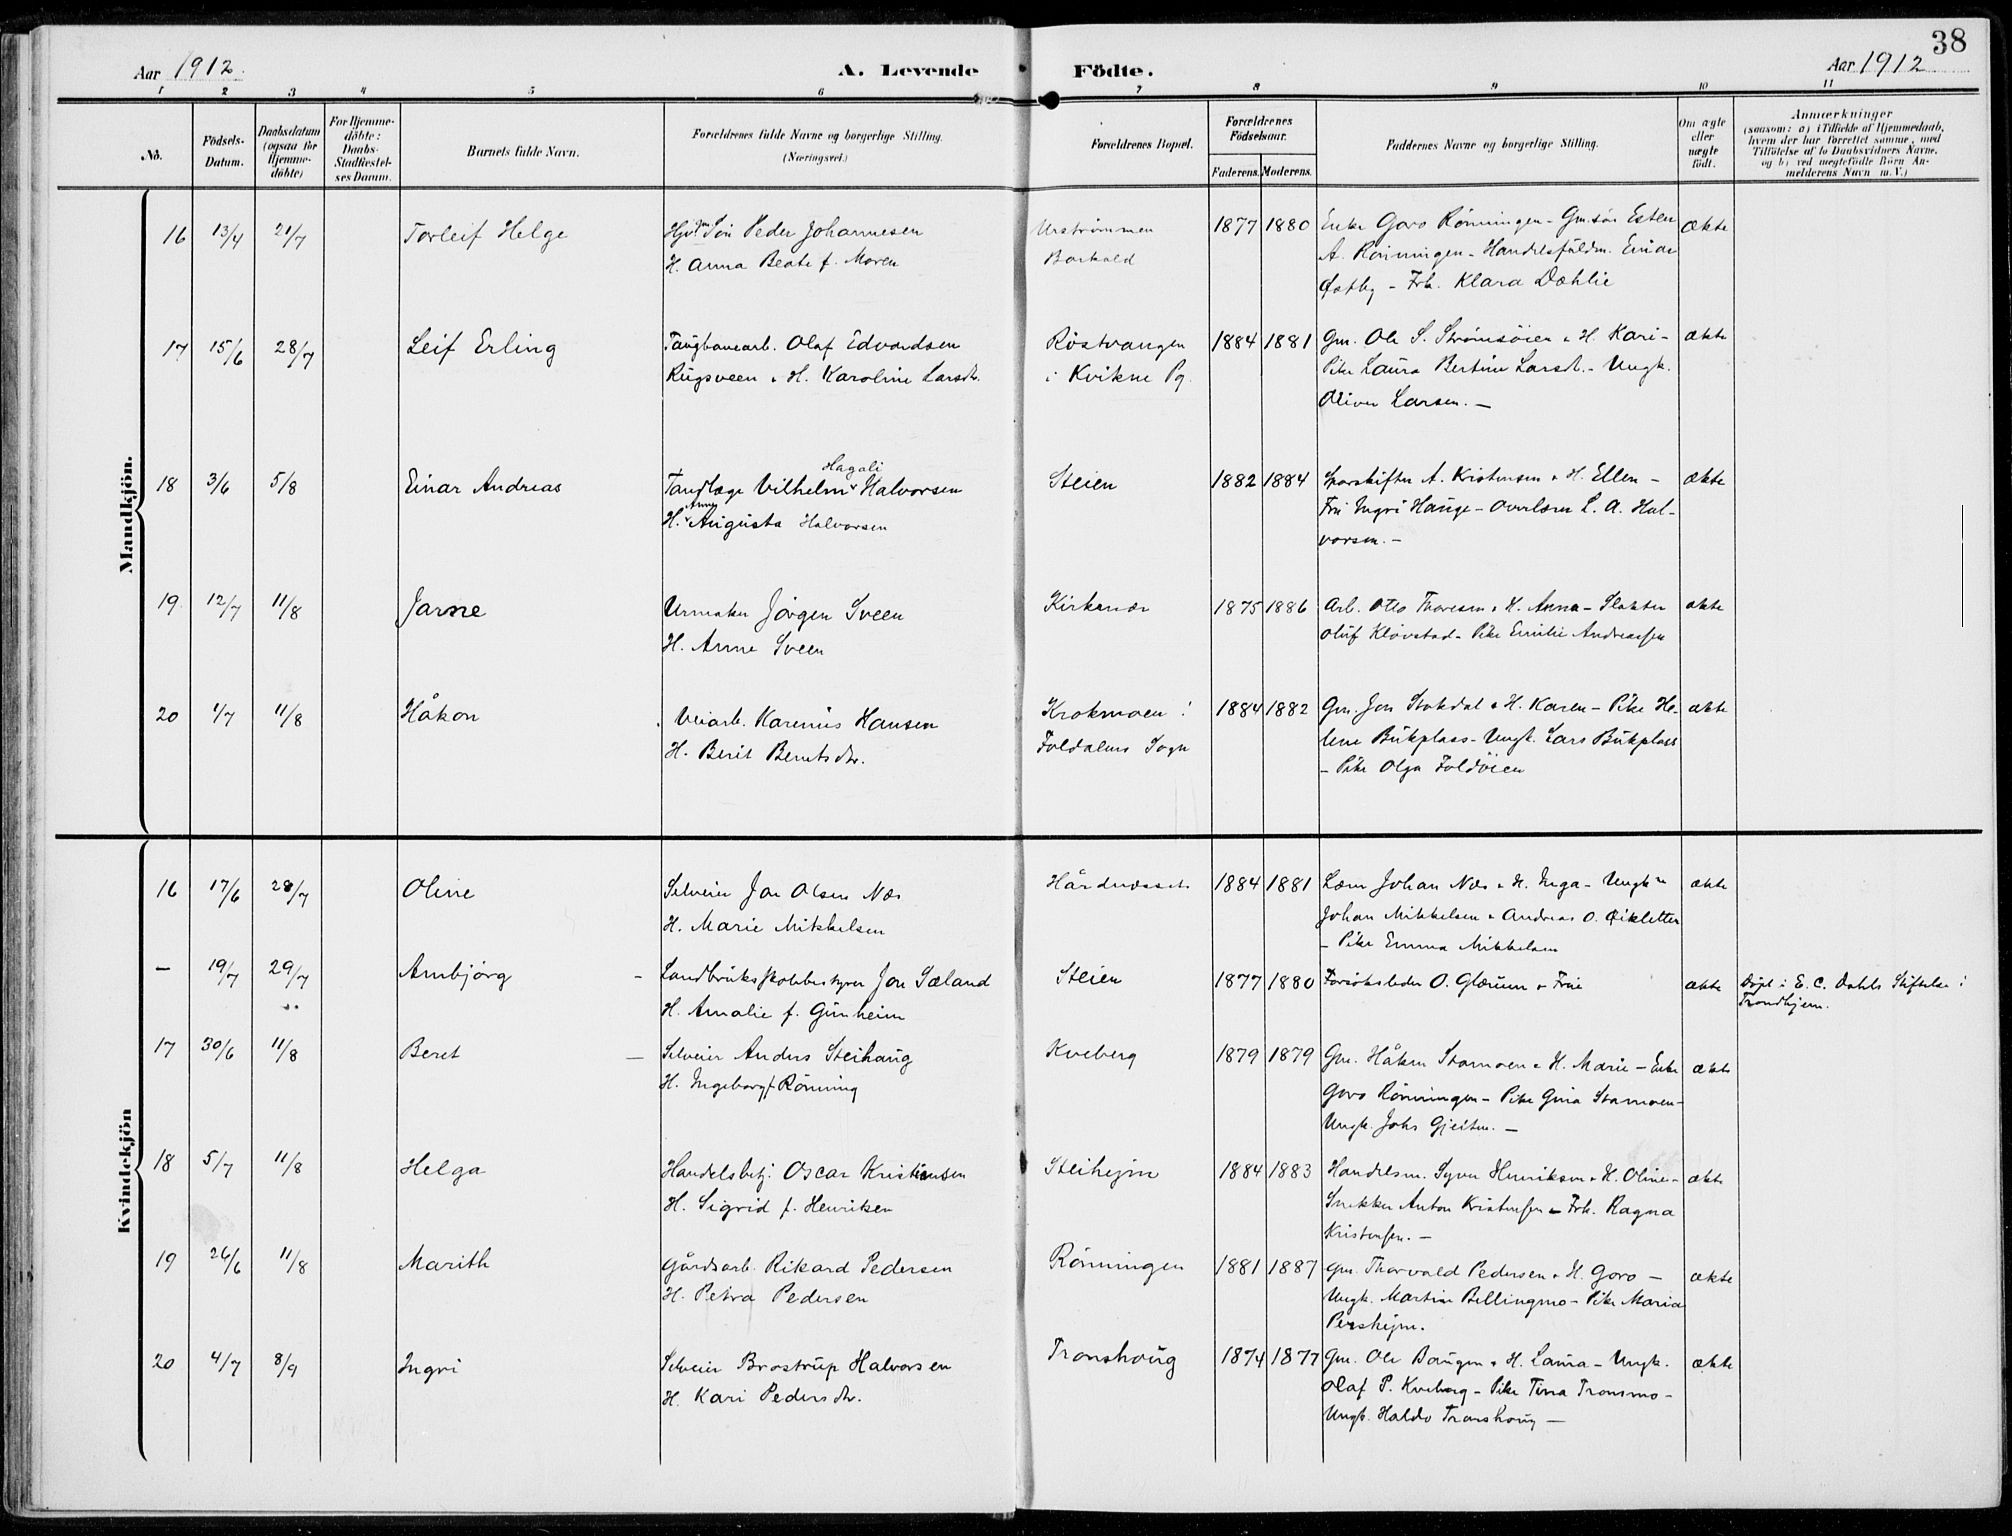 Aar 1912.
A. Levende
Födte.
Aar 1912
38
1 2 3 4 5 6 7 8 9 10 11
No.
Födsels-
Datum.
Daabsdatum
(ogsaa for
Hjemme-
döbte)
For Hjemme-
döbte:
Daabs-
Stadfæstel-
ses Datum.
Barnets fulde Navn.
Forældrenes fulde Navne og borgerlige Stilling.
(Næringsvei.)
Forældrenes Bopæl.
Forældrenes
Födselsaar.
Faderens. Moderens.
Faddernes Navne og borgerlige Stilling.
Om ægte
eller
uægte
födt.
Anmærkninger
(saasom: a) i Tilfælde af Hjemmedaab,
hvem der har forrettet samme, med
Tilföielse af to Daabsvidners Navne,
og b) ved uægtefödte Börn An-
melderens Navn m.V.)
Mandkjön.
16 13/4 21/7 Torleif Helge
Sön Peder Johannesen
H. Anna Beate f. Moren
Urströmmen
Barkald
1877 1880
Enke Goro Rönningen - Gm.sön Esten
A. Rönningen - Handelsfuldm. Einar
Østby - Frk. Klara Dæhlie
ækte
17 15/6 28/7 Leif Erling
Taugbanearb. Olaf Edvardsen
Rugsveen & H. Karoline Larsdtr.
Röstvangen
i Kvikne Pg.
1884 1881
Gm. Ole S. Strömsöien & H. Kari -
Pike Laura Bertine Larsdtr. - Ungk.
Oliver Larsen. -
ækte
18 3/6 5/8 Einar Andreas
Hagali
Tandlæge Vilhelm Halvorsen
Anny
H. Augusta Halvorsen
Steien
1882 1884
A. Kristensen & H. Ellen -
Fru Ingri Hauge - Overlærer L. A. Hal-
vorsen. -
ækte
19 12/7 11/8 Jarne
Urmaker Jörgen Sveen
H. Anne Sveen
Kirkenær
1875 1886
Arb. Otto Thoresen & H. Anna - Slakter
Oluf Klövstad - Pike Emilie Andreassen
ækte
20 1/7 11/8 Håkon
Veiarb. Karenius Hansen
H. Berit Berntsdtr.
Krokmoen i
Foldalens Sogn
1884 1882
Gm. Jon Stokdal & H. Karen - Pike He-
lene Bukplass - Ungk. Lars Bukplass
- Pike Olga Foldöien
ækte
Kvindekjön
16 17/6 28/7 Oline
Selveier Jon Olsen Næs
H. Marie Mikkelsen
Hårdnesset
1884 1881
Lærer Johan Næs & H. Inga - Ungk.
Johan Mikkelsen & Andreas O. Eikletten
- Pike Emma Mikkelsen
ækte
- 19/7 29/7 Arnbjörg
Landbruksskolebestyrer Jon Sæland
H. Amalie f. Gunheim
Steien
1877 1880
Forsöksleder O. Glærum & Frue
ækte
Döpt i E. C. Dahls Stiftelse i
Trondhjem.
17 30/6 11/8 Beret
Selveier Anders Steihaug
H. Ingeborg f. Rönning
Kveberg
1879 1879
Gm. Håken Stamoen & H. Marie - Enke
Goro Rönningen - Pike Gina Stamoen -
Ungk. Johs Gjeitm. -
ækte
18 5/7 11/8 Helga
Handelsbetj. Oscar Kristiansen
H. Sigrid f. Henriksen
Steihejm
1884 1883
Handelsm. Syver Henriksen & H. Oline -
Snekker Anton Kristensen - Frk. Ragna
Kristensen. -
ækte
19 26/6 11/8 Marith
Gårdsarb. Rikard Pedersen
H. Petra Pedersen
Rönningen
1881 1887
Gm. Thorvald Pedersen & H. Goro -
Ungk. Martin Bellingmo - Pike Maria
Pershejm.
ækte
20 4/7 8/9 Ingri
Selveier Brostrup Halvorsen
H. Kari Pedersdtr.
Tronshoug
1874 1877
Gm. Ole Baugen & H. Laura - Ungk.
Olaf P. Kveberg - Pike Tina Tronsmo -
Ungk. Haldo Tronshoug -
ækte